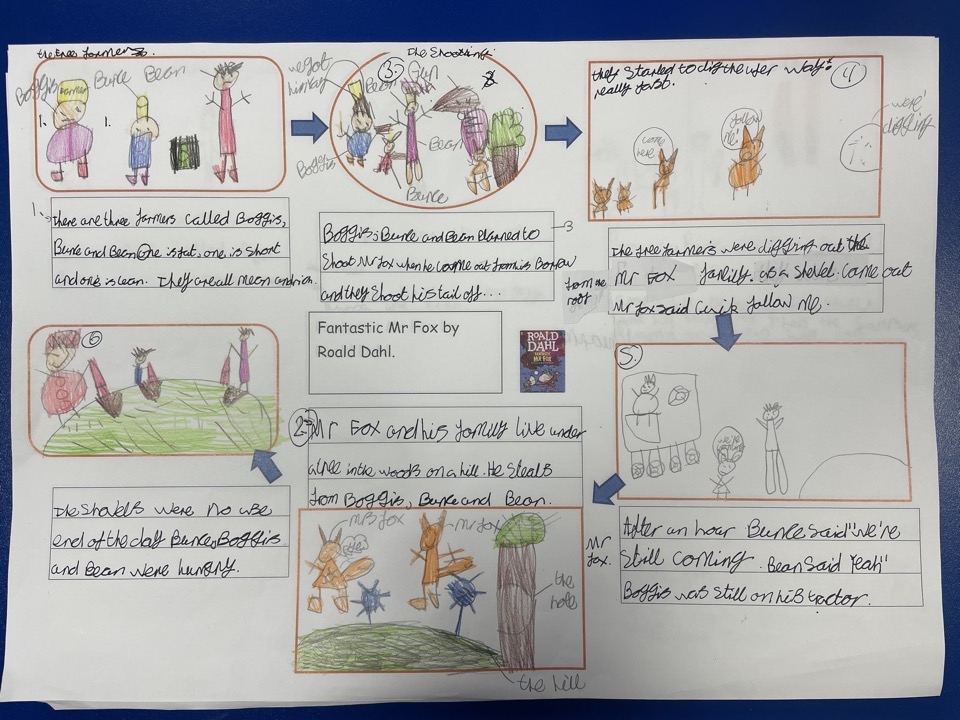 the three farmers.
Boggis
Bunce
Bean
farmer
1.
1.
1. There are three farmers called Boggis,
Bunce and Bean One is fat, one is short
and one is lean. They are all mean and rich.
The Shooting.
3.
Gun
we got
him
Bean
Boggis
Bean
Bunce
3
Boggis, Bunce and Bean Planned to
Shoot Mr Fox when he came out from his Borrow
and they Shoot his tail off...
they started to dig theyer way
really fast.
4
come
here
follow
me!
were
digging
The free farmers were digging out the
Mr Fox family. as a shovel came out
from the
roof
Mr fox said Quik follow me.
5.
we're
After an hour Bunce said "we're
Still coming. Bean said Yeah"
Boggis was still on his tractor.
6
The Shovels were no use
end of the day Bunce, Boggis
and Bean were hungry.
Fantastic Mr Fox by
Roald Dahl.
ROALD
DAHL
FANTASTIC
MR FOX
2. Mr Fox and his family live under
a tree in the woods on a hill. He steals
from Boggis, Bunce and Bean.
mrs fox
Mr fox
Mr
fox.
the
hole
the hill